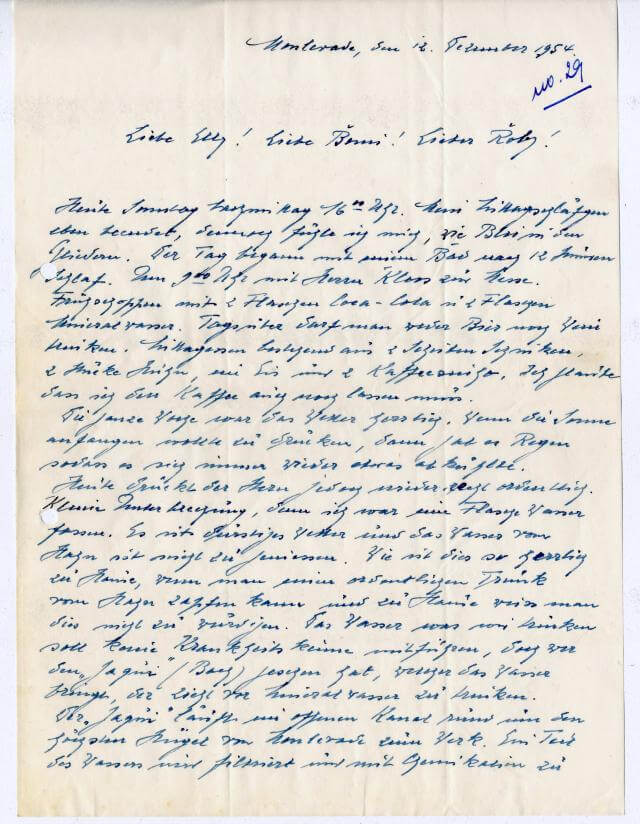 Monlevade, den 12. Dezember 1954.
no. 29
Liebe Elly! Liebe Berni! Lieber Röby!
Heute Sonntag Nachmittag 16 00 Uhr. Mein Mittagsschläfchen
eben beendet, deswegen fühle ich mich, wie Blei in den
Gliedern. Der Tag begann mit einem Bad nach 12 Stunden
Schlaf. Um 9 00 Uhr mit Herrn Kloss zur Messe.
Frühschoppen mit 2 Flaschen Coca-Cola u 2 Flaschen
Mineralwasser. Tagsüber darf man weder Bier noch Wein
trinken. Mittagessen bestehend aus 2 Scheiben Schinken,
2 Stücke Huhn, ein Eis und 2 Kaffee. Ich glaube
dass ich den Kaffee auch noch lassen muss.
Die ganze Woche war das Wetter herrlich. Wenn die Sonne
anfangen wollte zu drücken, dann gab es Regen
sodass es sich immer wieder etwas abkühlte.
Heute drückt der Herr jedoch wieder recht ordentlich.
Kleine Unterbrechung, denn ich war eine Flasche Wasser
fassen. Es ist durstiges Wetter und das Wasser vom
Hahn ist nicht zu geniessen. Wie ist dies so herrlich
zu Hause, wenn man einen ordentlichen Trunk
vom Hahn zapfen kann und zu Hause weiss man
dies nicht zu würdigen. Das Wasser was wir trinken
soll keine Krankheitskeime mitführen, doch wer
den "Jaguri" (Bach) gesehen hat, welcher das Wasser
bringt, der zieht vor Mineralwasser zu trinken.
Der "Jaguri" läuft im offenen Kanal rund um den
höchsten Hügel von Monlevade zum Werk. Ein Teil
des Wassers wird filtriert und mit Chemikalien zu